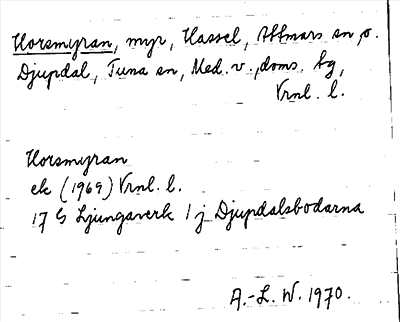 Korsmyran, myr, Hassel, Attmars sn, o.
Djupdal, Tuna sn, Med. v., doms. bg,
Vrnl. l.
Korsmyran
ek (1969) Vrnl. l.
17 G Ljungaverk 1 j Djupdalsbodarna
A.-L. W. 1970.